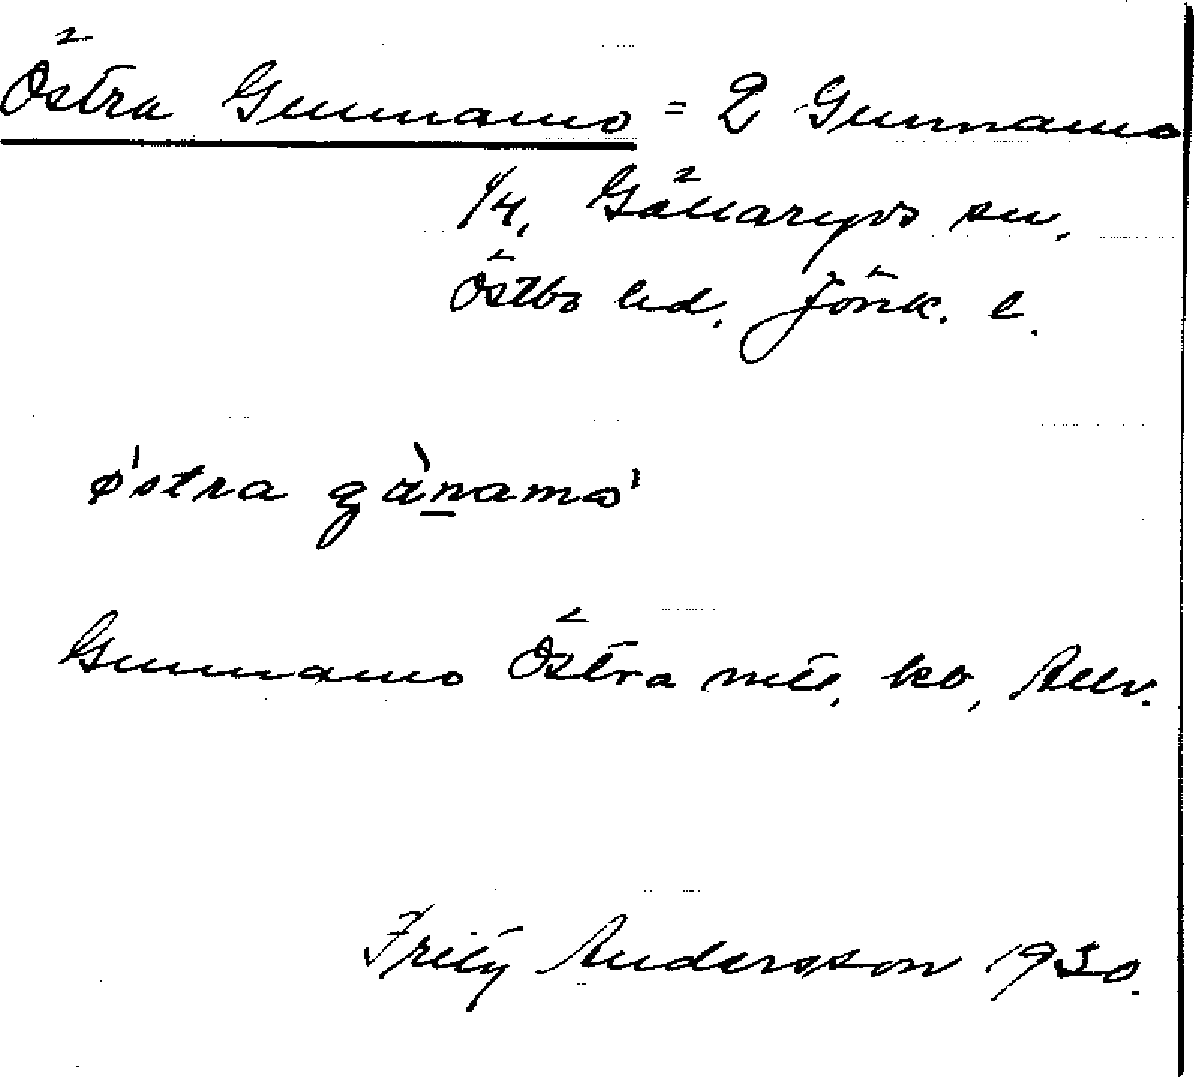 Östra Gunnamo = 2 Gunnamo
1/4, Gällaryds sn,
Östbo hd, Jönk. l.
østra gànamo
Gunnamo Östra mtl, ko,
Fritz Andersson 1930.